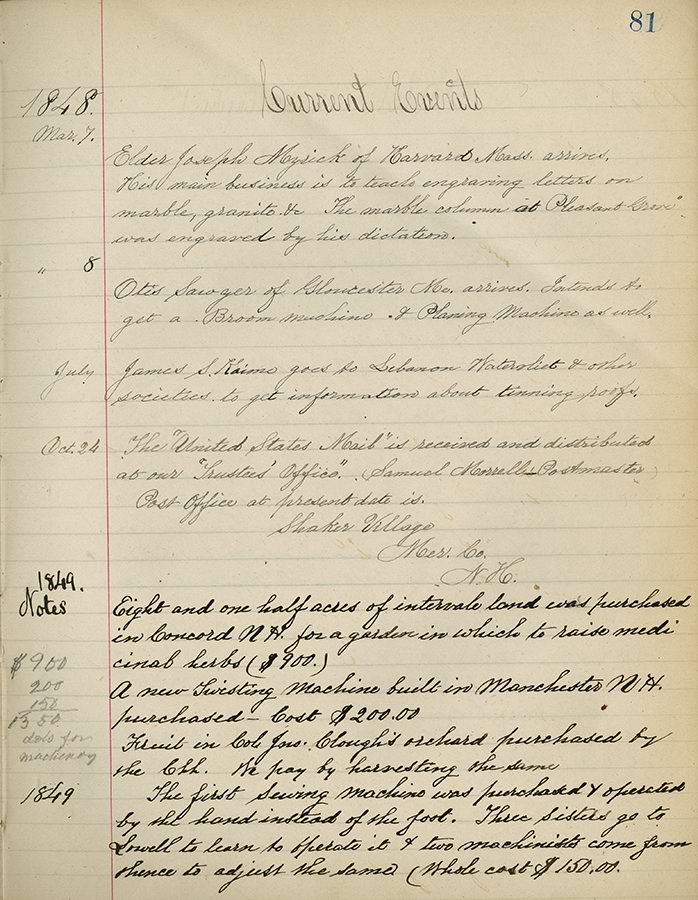 81
Current Events
1848.
Mar. 7.
Elder Joseph Myrick of Harvard Mass. arrives.
His main business is to teach engraving letters on
marble, granite &c The marble column at "Pleasant Grove"
was engraved by his dictation.
" 8
Otis Sawyer of Gloucester Me. arrives. Intends to
get a Broom machine & Planing Machine as well.
July James S. Kaime goes to Lebanon Watervliet & other
societies to get information about tinning roofs.
Oct. 24 The "United States Mail" is received and distributed
at our "Trustees' Office". (Samuel Morrell - Postmaster)
Post Office at present date is.
Shaker Village
Mer. Co.
N. H.
1849.
Notes Eight and one half acres of intervale land was purchased
in Concord N.H. for a garden in which to raise medi
$900 cinal herbs ($900.)
200 A new Twisting Machine built in Manchester N.H.
150
1350 purchased - Cost $200.00
dols for Fruit in Col. Jno. Clough's orchard purchased by
machinery the Chh. We pay by harvesting the same
1849 The first Sewing Machine was purchased & operated
by the hand instead of the foot. Three Sisters go to
Lowell to learn to operate it & two machinists come from
thence to adjust the same (Whole cost $150.00.